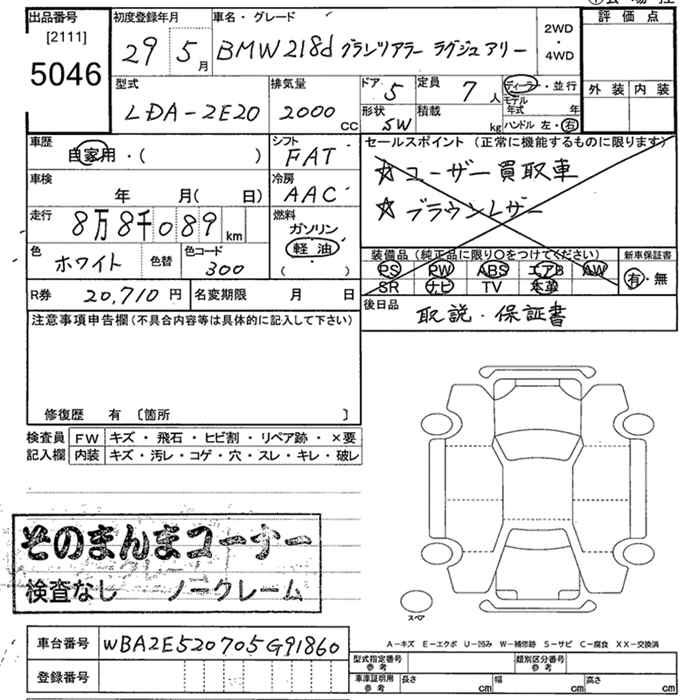 出品番号 初度登録年月 車名・グレード 評価点
[2111] 2WD
5046 29 5月 BMW218d グランツアラー ラグジュアリー ・
4WD
型式 排気量 ドア 5 定員 7人 ディーラー・並行 外装 内装
LDA-2E20 2000cc 形状 SW 積載 kg モデル年式 年
ハンドル 左・右
車歴 シフト セールスポイント (正常に機能するものに限ります)
自家用・( ) FAT ☆ユーザー買取車
車検 冷房 ☆ブラウンレザー
年 月( 日) AAC
走行 燃料
8万8千089km ガソリン
軽油
( )
色 色替 色コード 装備品(純正品に限り○をつけてください) 新車保証書
ホワイト 300 PS PW ABS エアB AW 有・無
SR ナビ TV 本革
R券 20,710円 名変期限 月 日 後日品 取説・保証書
注意事項申告欄(不具合内容等は具体的に記入して下さい)
修復歴 有 〔箇所 〕
検査員 FW キズ・飛石・ヒビ割・リペア跡・×要
記入欄 内装 キズ・汚レ・コゲ・穴・スレ・キレ・破レ
そのまんまコーナー
検査なし ノークレーム
スペア
A－キズ E－エクボ U－凹み W－補修跡 S－サビ C－腐食 XX－交換済
車台番号 WBA2E520705G91860 型式指定番号 参考 類別区分番号 参考
登録番号 車庫証明用 参考 長さ cm 幅 cm 高さ cm